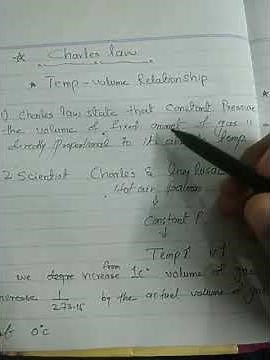 Charles law
* Temp - volume Relationship
1) Charles law state that Constant Pressure
the volume of fixed amount of gas is
directly proportional to its temp
2 Scientist Charles & Gay lusac
Hot air baloon
↓
Constant P.
↓
Temp↑ V↑
we degre increase from 1c° volume of gas
increase 1/273.15 by the actual volume of gas
of 0°c